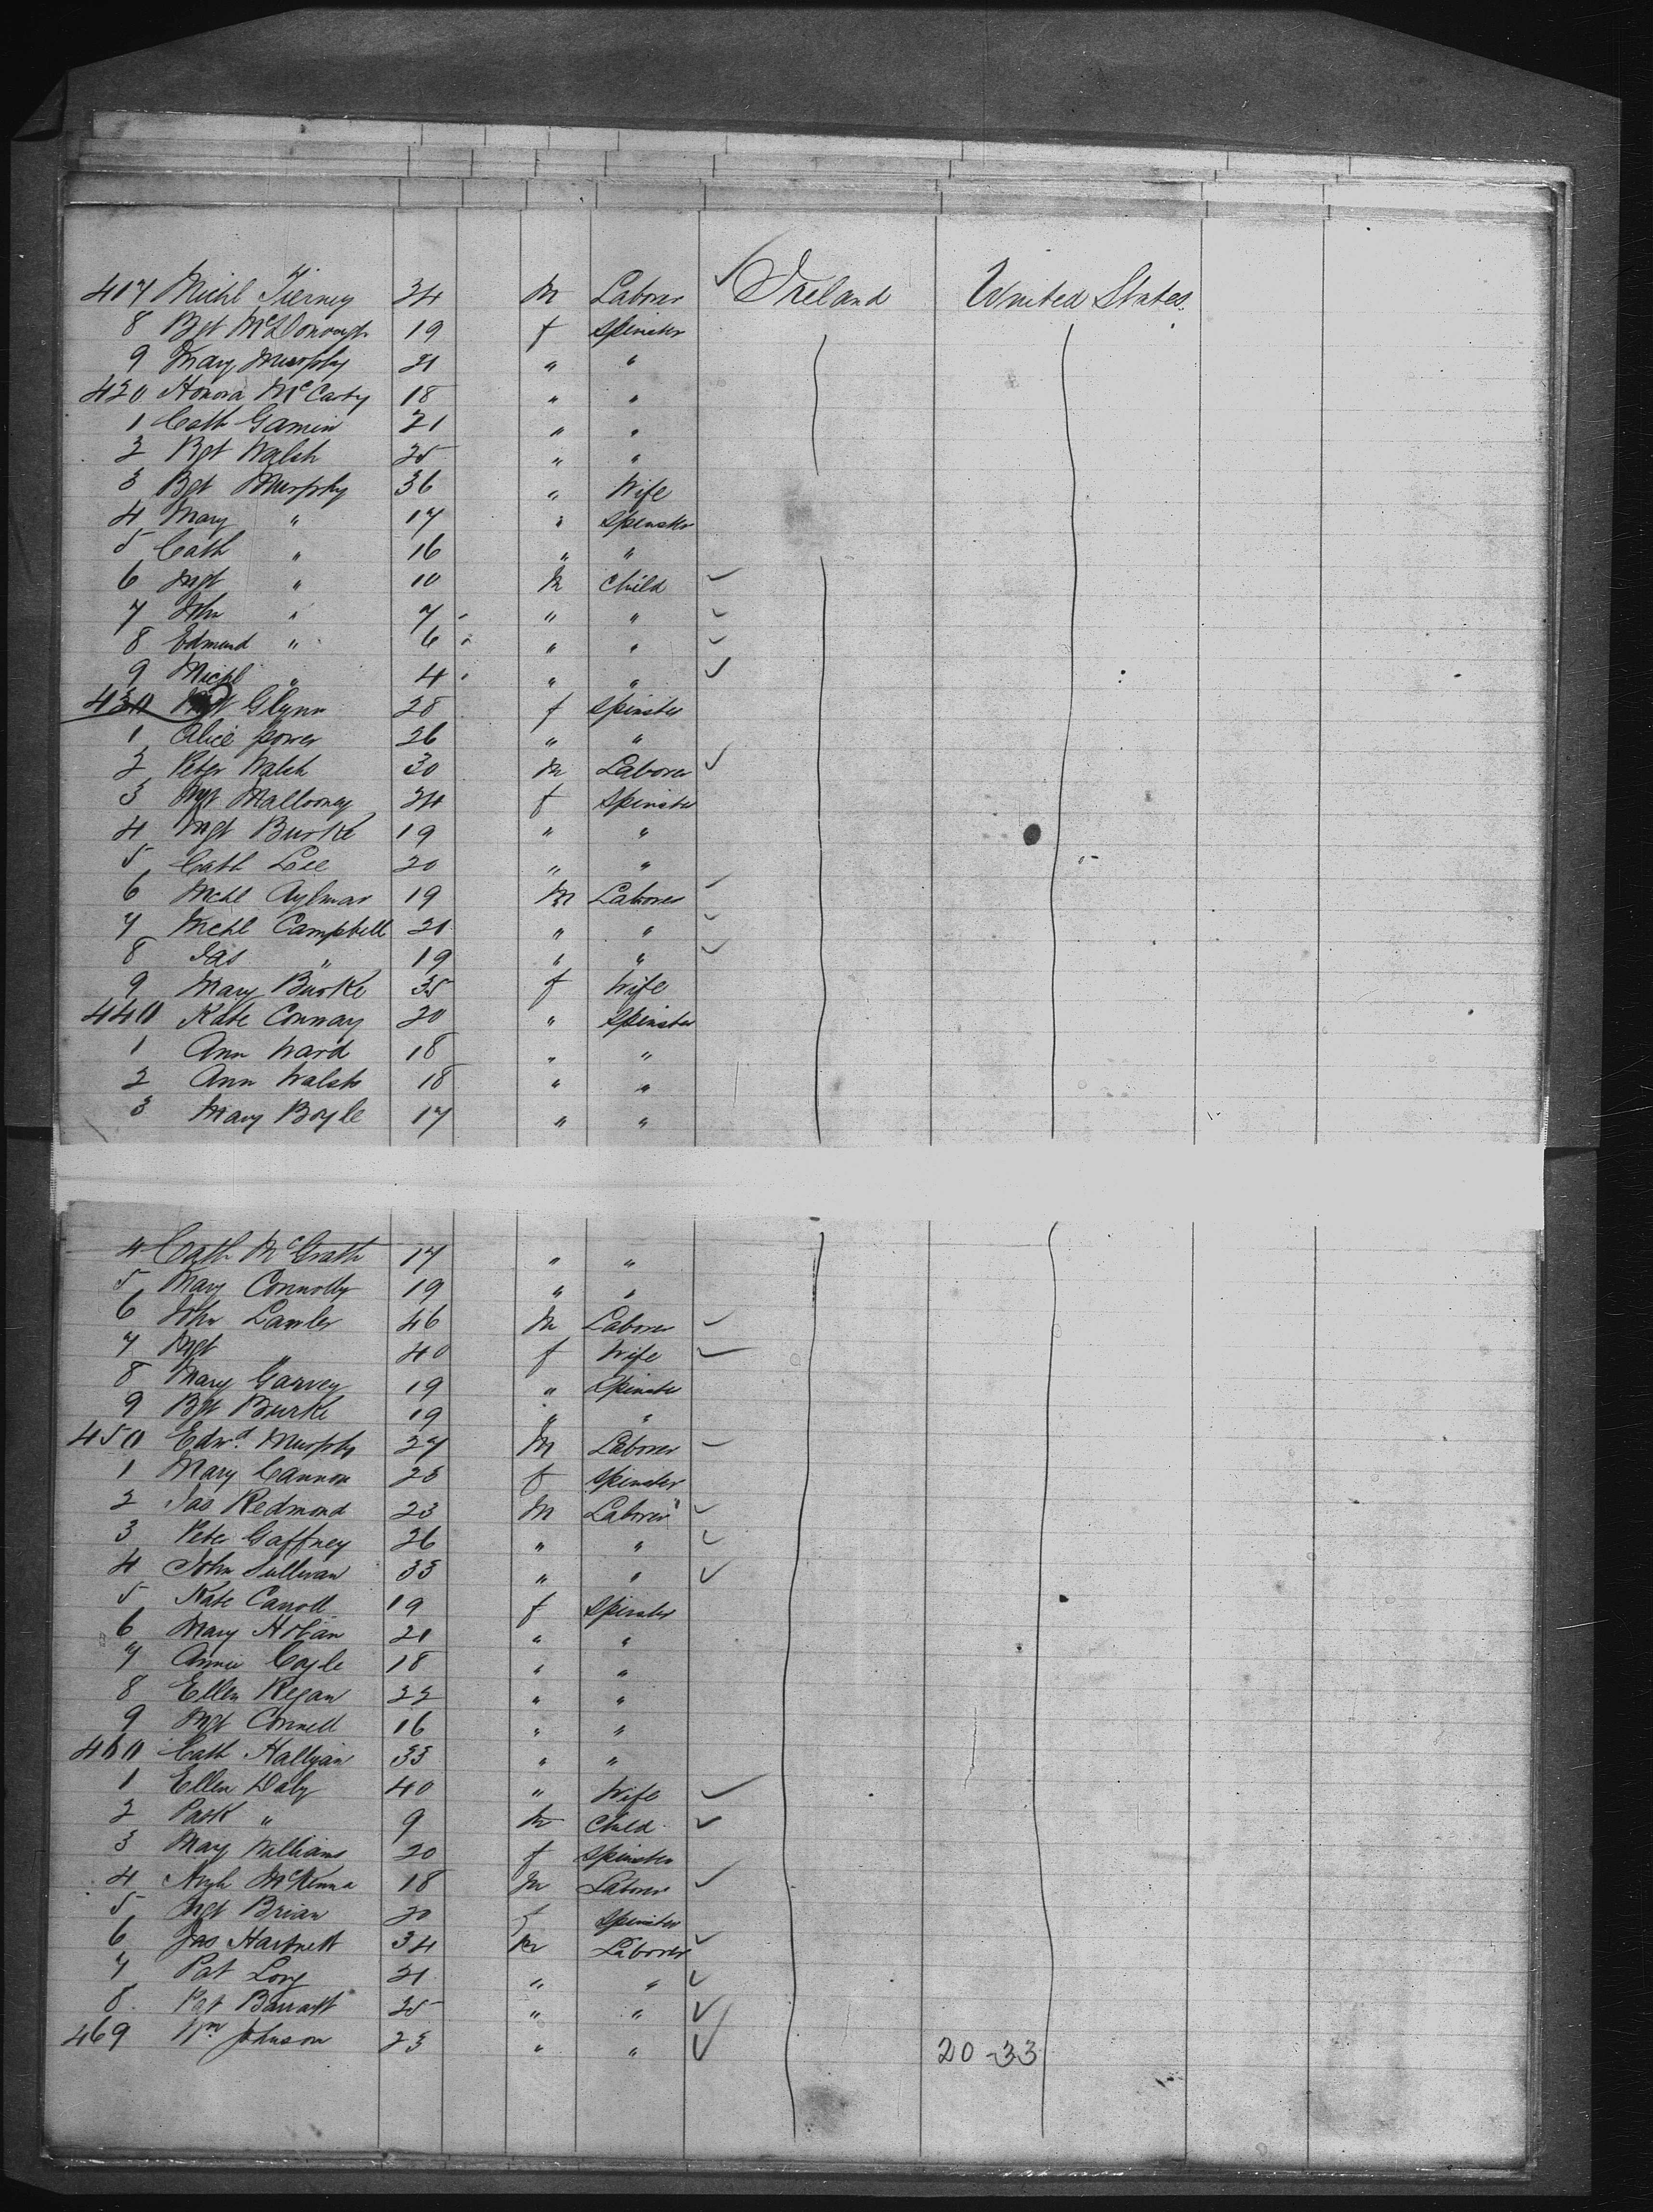 417 Michl Tierney 24 M Laborer ✓ Ireland United States
8 Bgt McDonough 19 f Spinster
9 Mary Murphy 21 " "
420 Honora McCarty 18 " "
1 Cath Gamin 21 " "
2 Bgt Walsh 25 " "
3 Bgt Murphy 36 " Wife
4 Mary " 17 " Spinster
5 Cath " 16 " "
6 Mgt " 10 M Child ✓
7 John " 7 " " ✓
8 Edmund " 6 " " ✓
9 Michl " 4 " " ✓
430 Mgt Glynn 28 f Spinster
1 Alice Power 26 " "
2 Peter Walsh 30 M Laborer ✓
3 Mgt Mallooney 24 f Spinster
4 Mgt Burke 19 " "
5 Cath Lee 20 " "
6 Mchl Aylmar 19 M Laborer ✓
7 Mchl Campbell 21 " " ✓
8 Jas " 19 " " ✓
9 Mary Burke 35 f Wife
440 Kate Conway 20 " Spinster
1 Ann Ward 18 " "
2 Ann Walsh 18 " "
3 Mary Boyle 17 " "
4 Cath McGrath 17 " "
5 Mary Connolly 19 " "
6 John Lawler 46 M Laborer ✓
7 Mgt " 40 f Wife ✓
8 Mary Garvey 19 " Spinster
9 Bgt Burke 19 " "
450 Edwd. Murphy 27 M Laborer ✓
1 Mary Cannon 23 f Spinster
2 Jas Redmond 23 M Laborer ✓
3 Peter Gaffney 26 " " ✓
4 John Sullivan 33 " " ✓
5 Kate Carroll 19 f Spinster
6 Mary Hoban 21 " "
7 Annie Coyle 18 " "
8 Ellen Regan 22 " "
9 Mgt Connell 16 " "
460 Cath Hallyan 33 " "
1 Ellen Daly 40 " Wife ✓
2 Patk " 9 M Child ✓
3 Mary Williams 20 f Spinster
4 Hugh McKenna 18 M Laborer ✓
5 Mgt Brian 20 f Spinster
6 Jas Hartnett 34 M Laborer ✓
7 Pat Long 21 " " ✓
8 Pat Barratt 25 " " ✓
469 Wm Johnson 23 " " ✓ 20-33